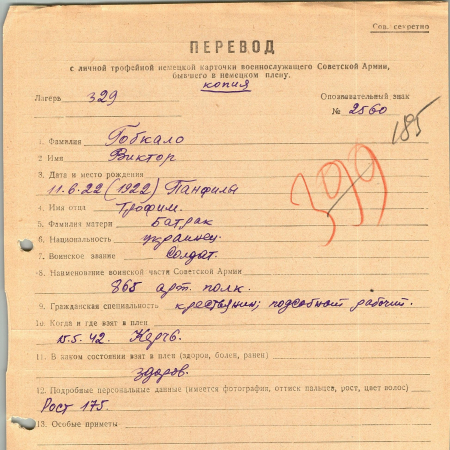 Сов. секретно
ПЕРЕВОД
с личной трофейной немецкой карточки военнослужащего Советской Армии,
бывшего в немецком плену.
копия
Лагерь 329
Опознавательный знак
№ 2560
185
399
1. Фамилия Гобкало
2 Имя Виктор
3. Дата и место рождения
11.6.22 (1922) Панфила
4. Имя отца Трофим.
5. Фамилия матери Батрак
6. Национальность украинец.
7. Воинское звание Солдат.
8. Наименование воинской части Советской Армии
865 арт. полк.
9. Гражданская специальность крестьянин; подсобный рабочий.
10 Когда и где взят в плен
15.5.42. Керчь.
11. В каком состоянии взят в плен (здоров, болен, ранен)
здоров.
12. Подробные персональные данные (имеется фотография, оттиск пальцев, рост, цвет волос)
Рост 175.
13. Особые приметы